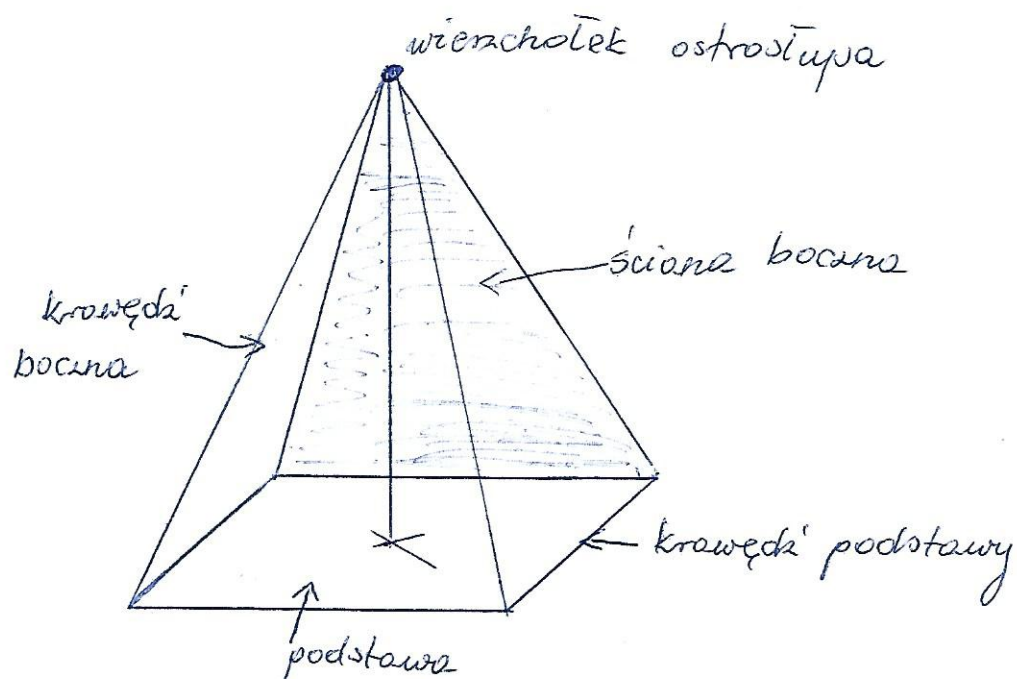 wierzchołek ostrosłupa
ściana boczna
krawędź
boczna
krawędź podstawy
podstawa